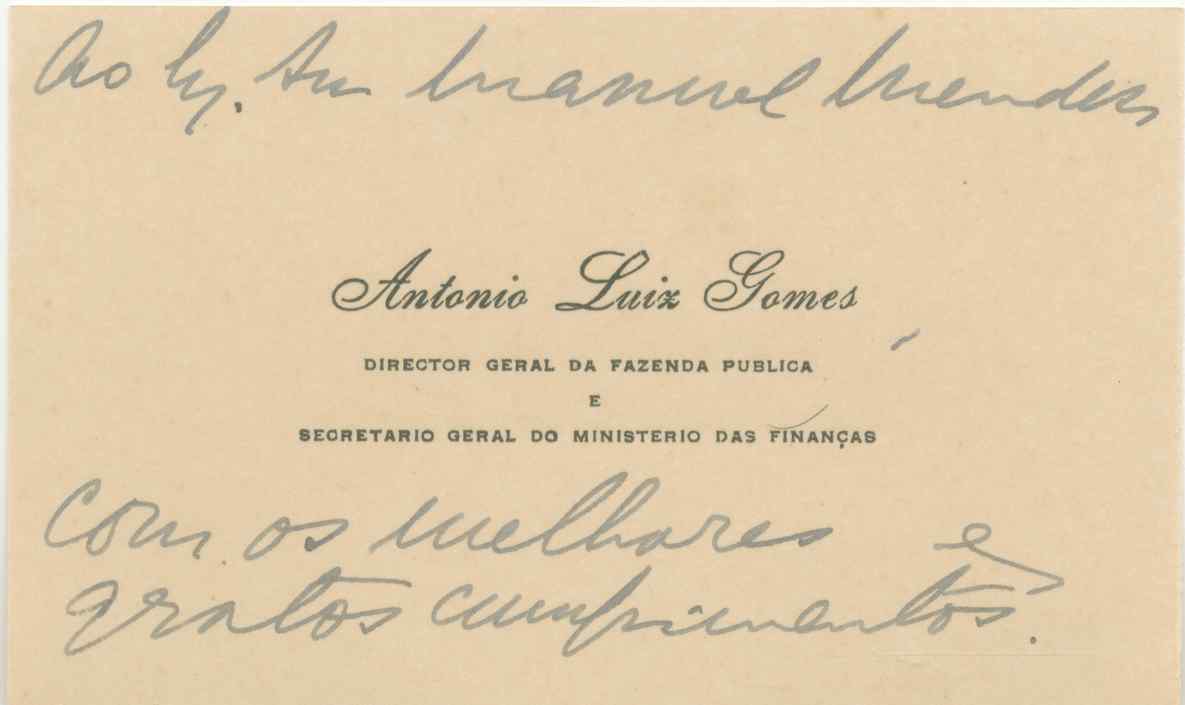 Ao Manuel Mendes
Antonio Luiz Gomes
DIRECTOR GERAL DA FAZENDA PUBLICA
E
SECRETARIO GERAL DO MINISTERIO DAS FINANÇAS
com os melhores e
gratos cumprimentos.